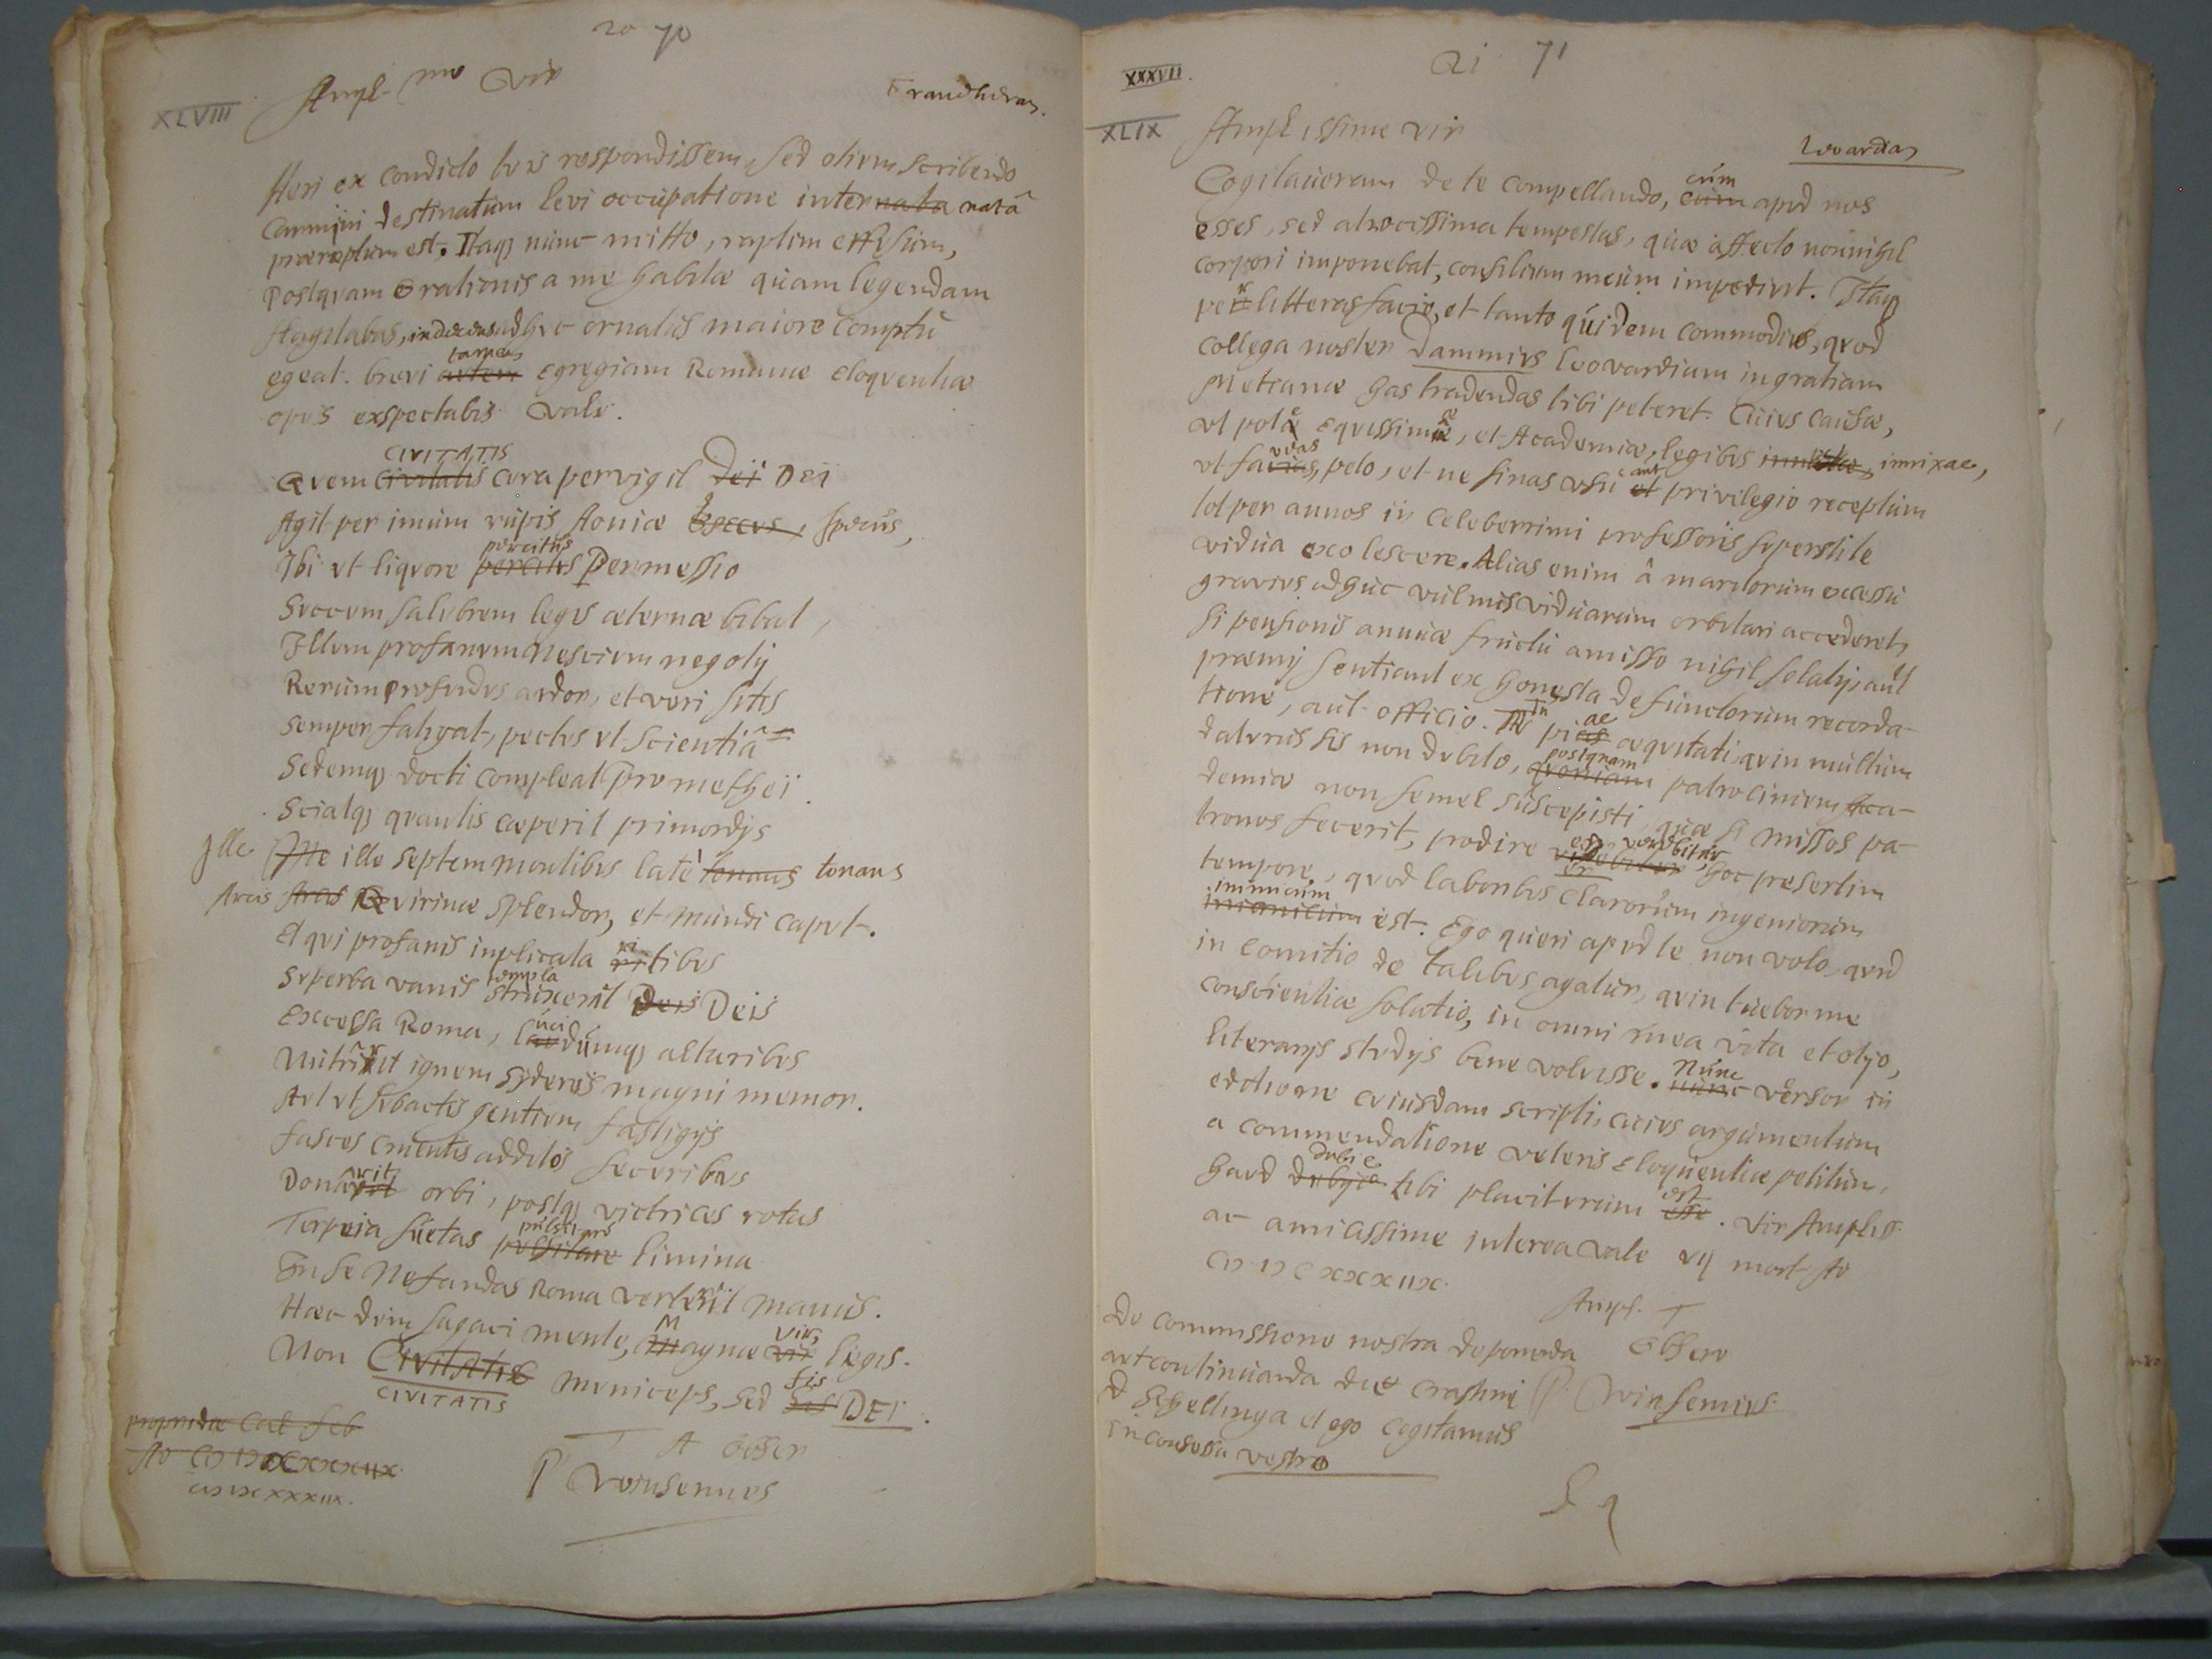 20 70
XLVIII
Ampl-mo Vir
Heri ex condicto tuis respondissem, sed otium scribendo
carmini destinatum levi occupatione internata natâ
præreptum est. Itaq nunc mitto, raptim effusum,
postquam Orationis a me habitæ quam legendam
flagitabas, adhuc ornatus maiore comptu
egeat. brevi autem tamen Egregiam Romanæ Eloquentiæ
opus exspectabis Vale.
CIVITATIS
Quem Civitatis cura pervigil Dei Dei
Agit per imum rupis Aoniæ specus, specus,
Ibi ut liquore percitus percitus Permessio
Succum salubrem legis æternæ bibat,
Illum profanum nescium negotij
Rerum profundus ardor, et veri sitis
Semper fatigat, pectus ut scientiâ
Sedemq docti compleat Promethei.
Sciatq quantis cæperit primordijs
Ille Ille ille septem montibus latè tonans tonans
Arcis Arcis Quirinæ splendor, et mundi caput.
Et qui profanis implicata ritibus
Superba vanis templa struxerit Deis Deis
Excelsa Roma, lucidumq altaribus
Nutrivit ignem syderis magni memor.
Aut ut subactis gentium fastigijs
Fasces cruentis additos securibus
Donavit orbi, postq victrices rotas
Tarpeia suetas pulsitare pulsitare limina
In se nefandas Roma verterit manus.
Hæc dum sagaci mente, Magnæ vir vir legis.
Non Civitatis municeps, sed sis sis DEI.
CIVITATIS
propridie Cal feb
Ao CIↃ IↃC XXXIIX
CIↃ IↃC XXXIIX.
T A obser
P Winsemius
XXXVII.
21 71
XLIX
Amplissime vir
Cogitaueram de te compellando, cum cum apud nos
esses, sed atrocissima tempestas, quæ affecto nonnihil
corpori imponebat, consilium meum impedivit. Itaq
per litteras facio, et tanto quidem commodius, quod
collega noster Dammius Leovardium in gratiam
Metianæ has tradendas tibi peteret. Cuius causæ,
ut potè Equissimæ, et Academiæ, legibus innixæ, innixae,
ut faveas, peto, et ne sinas usu et aut privilegio receptum
tot per annos in celeberrimi professoris superstite
vidua exolescere. Alias enim à maritorum excessu
gravius adhuc vulnus viduarum orbitati accederet,
si pensionis annuæ fructu amisso nihil solatij, aut
præmij sentiant ex honesta defunctorum recorda-
tione, aut officio. In piae æquitati, quin multum
daturus sis non dubito, quoniam postquam patrocinium Aca-
demiæ non semel suscepisti, quæ si missos pa-
tronos fecerit, prodire hoc presertim
tempore, quod laboribus clarorum ingeniorum
inimicum inimicum est. Ego queri apud te non volo, quid
in comitio de talibus agatur, quin tuebor me
conscientiæ solatio, in omni mea vita et otio,
literarijs studijs bene voluisse. Nunc nunc versor in
editione cuiusdam scripti, cuius argumentum
a commendatione veteris Eloquentiæ petitum,
haud dubie dubie tibi placiturum est esse. Vir Ampliss
ac amicissime interea Vale VIJ mart Ao
CIↃ IↃC XXXIIX.
Ampl. T
Obser
P. Winsemius
De commissione nostra deponenda
aut continuanda die crastini
D Schellinga et ego cogitamus
in consessu vestro